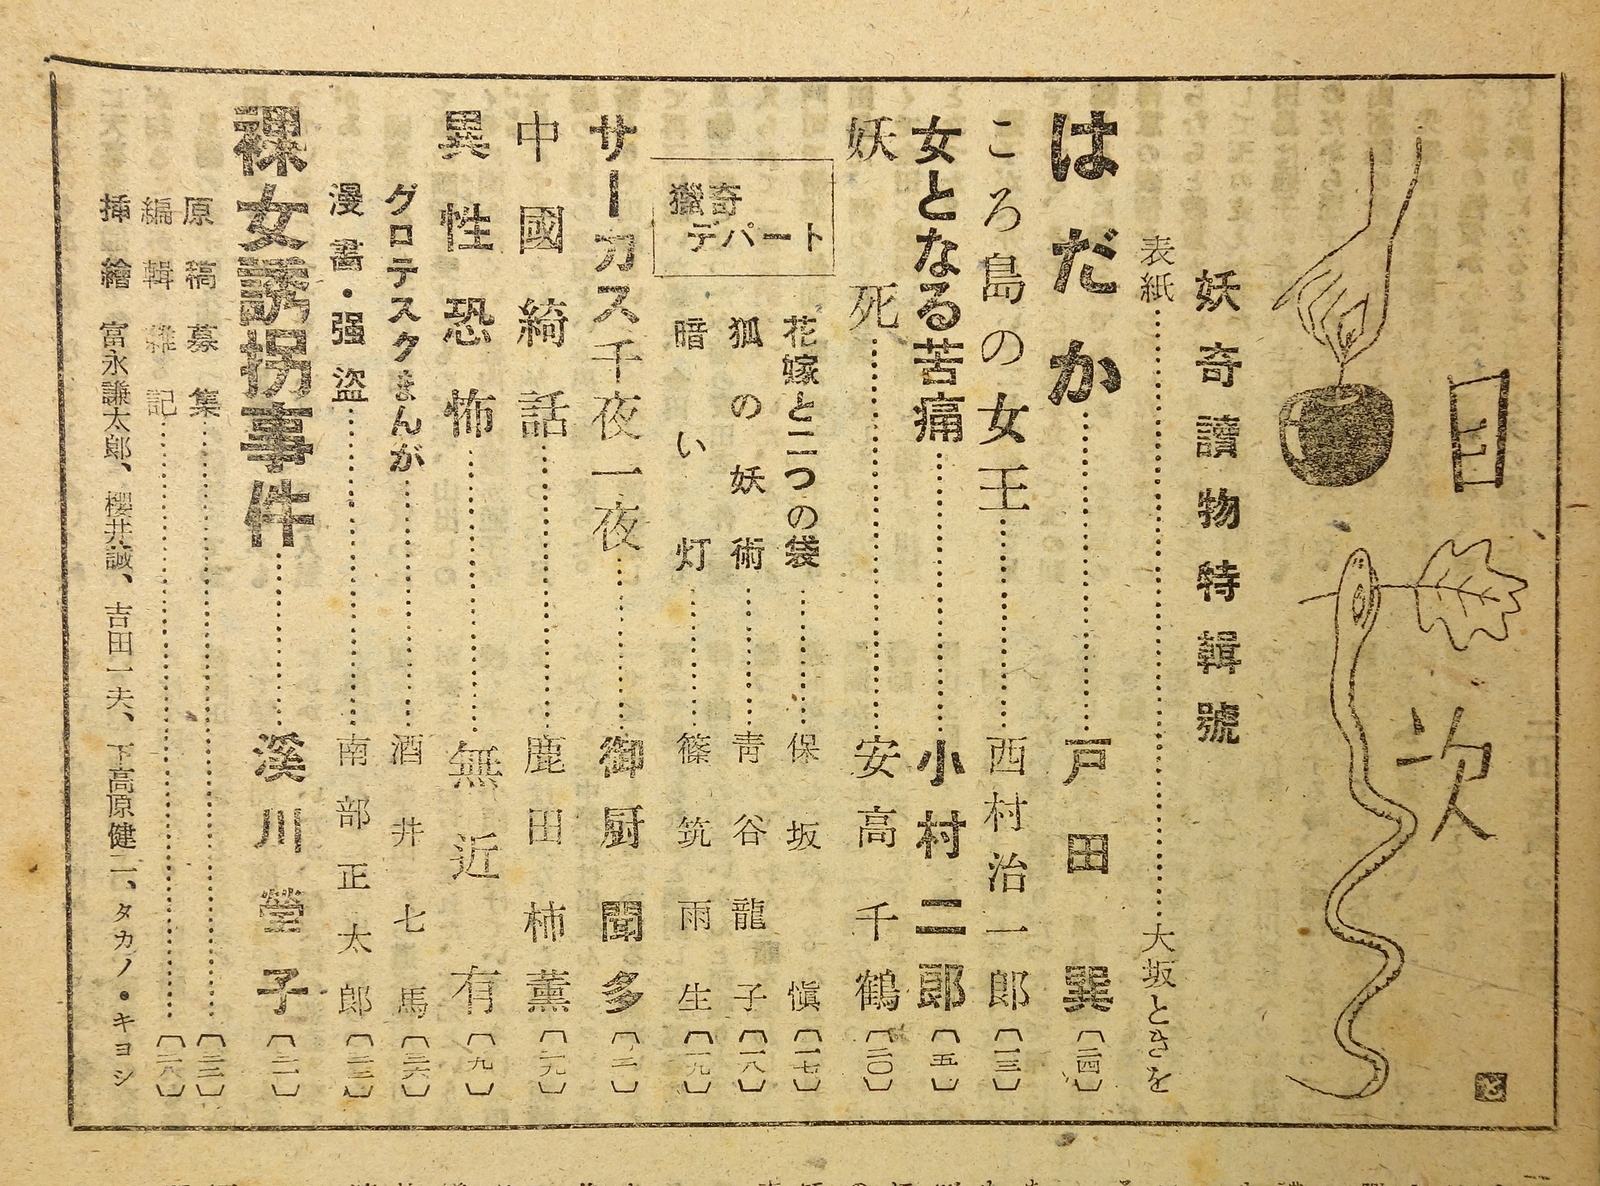 目次
妖奇讀物特輯號
表紙……大坂ときを
はだか……戸田巽〔二四〕
ころ島の女王……西村治一郎〔一三〕
女となる苦痛……小村二郎〔五〕
妖死……安高千鶴〔二〇〕
獵奇
デパート
花嫁と二つの袋……保坂愼〔一七〕
狐の妖術……靑谷龍子〔一八〕
暗い灯……篠筑雨生〔一九〕
サーカス千夜一夜……御厨聞多〔二〕
中國綺話……鹿田柿薫〔一九〕
異性恐怖……無近有〔九〕
グロテスクまんが……酒井七馬〔三六〕
漫畫・强盜……南部正太郎〔三三〕
裸女誘拐事件……溪川瑩子〔二一〕
原稿募集……〔三二〕
編輯雜記……〔三八〕
揷繪 富永謙太郎、櫻井誠、吉田一夫、下高原健二、タカノ・キヨシ
と